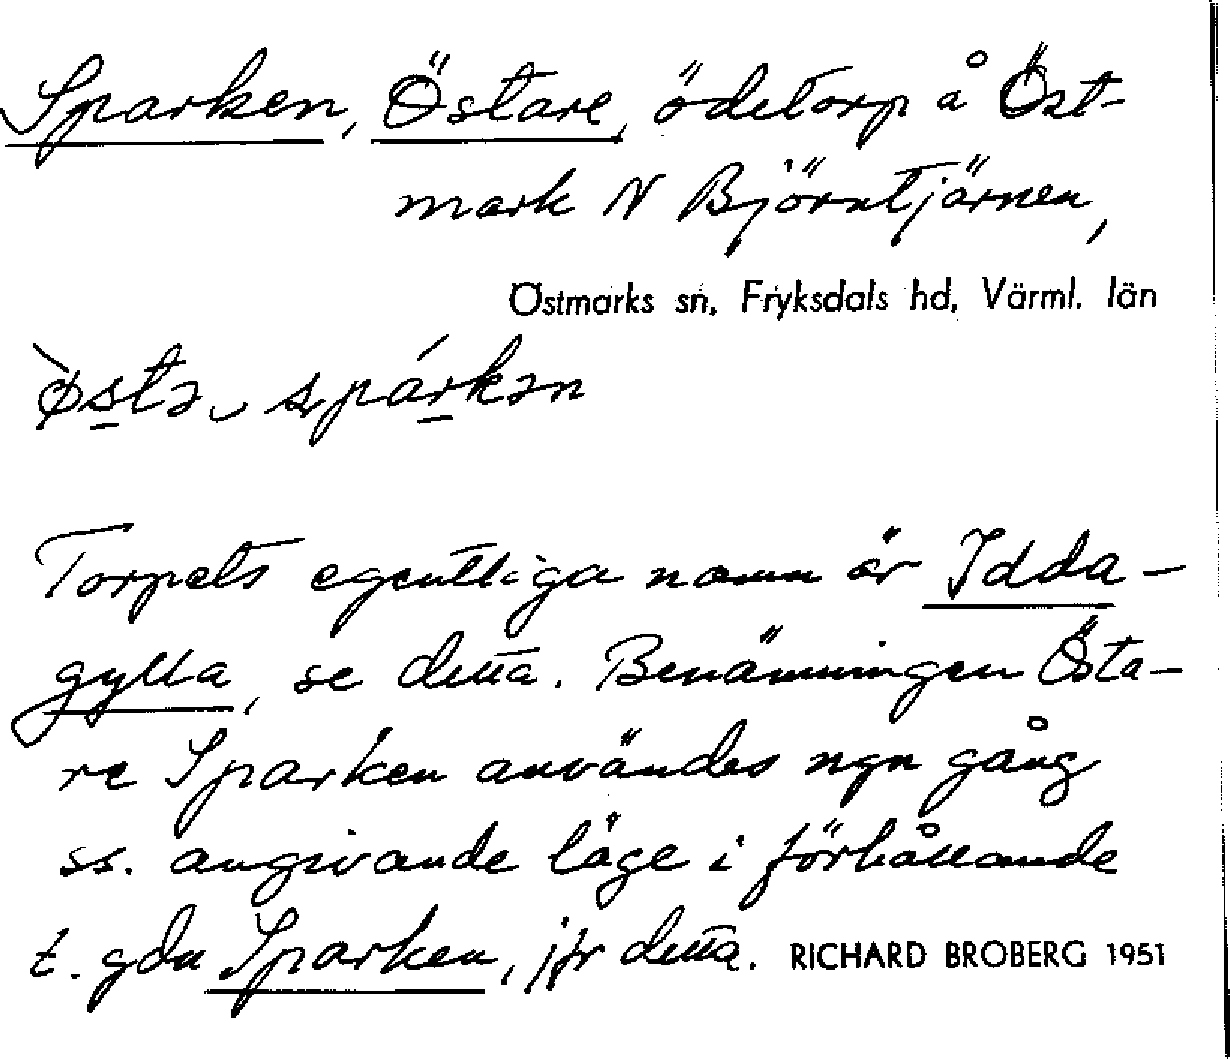 Sparken, Östare, ödetorp å Öst-
mark N Björntjärnen,
Östmarks sn, Fryksdals hd, Värml. län
ø̀stə spárkən
Torpets egentliga namn är Idda-
gylta, se detta. Benämningen Östa-
re Sparken användes ngn gång
ss. angivande läge i förhållande
t. gdn Sparken, jfr detta. RICHARD BROBERG 1951